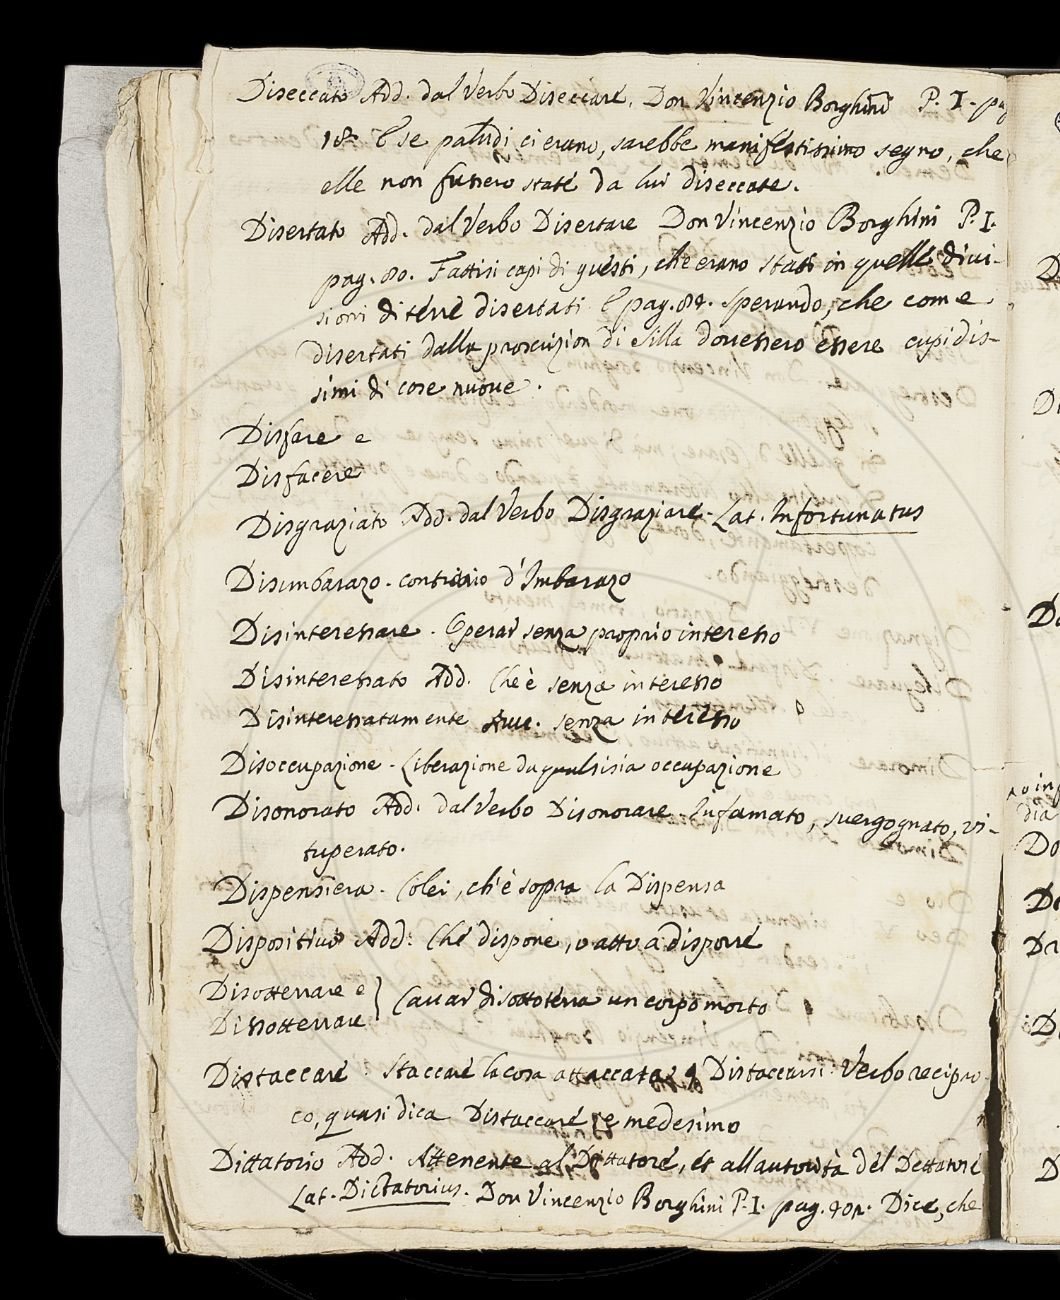 Diseccato Add. dal Verbo Diseccare. Don Vincenzio Borghini P. I. pag
18. E se paludi ci erano, sarebbe manifestissimo segno, che
elle non fussero state da lui diseccate.
Disertato Add. dal Verbo Disertare Don Vincenzio Borghini P. I.
pag. 80. Fattisi capi di questi, che erano stati in quelle divi-
sioni di terre disertati E pag. 84. sperando, che come
disertati dalla proscrizion di Silla dovessero essere cupidis-
simi di cose nuove.
Disfare e
Disfacere
Disgraziato Add. dal Verbo Disgraziare. Lat. Infortunatus
Disimbarazo. contrario d'Imbarazo
Disinteressare. Operar senza proprio interesso
Disinteressato Add. Che è senza interesso
Disinteressatamente Avv. senza interesso
Disoccupazione. Liberazione da qualsisia occupazione
Disonorato Add. dal Verbo Disonorare Infamato, svergognato, vi-
tuperato.
Dispensiera. Colei, ch'è sopra la Dispensa
Dispositivo Add. Che dispone, o atto a disporre
Disotterrare e } Cavar di sottoterra un corpo morto
Dissotterrare
Distaccare. Staccare la cosa attaccata, Distaccarsi Verbo recipro-
co, quasi dica Distaccare se medesimo
Dittatorio Add. Attenente al Dettatore, et all autorità del Dettatore
Lat. Dictatorius. Don Vincenzio Borghini P. I. pag. Dice, che